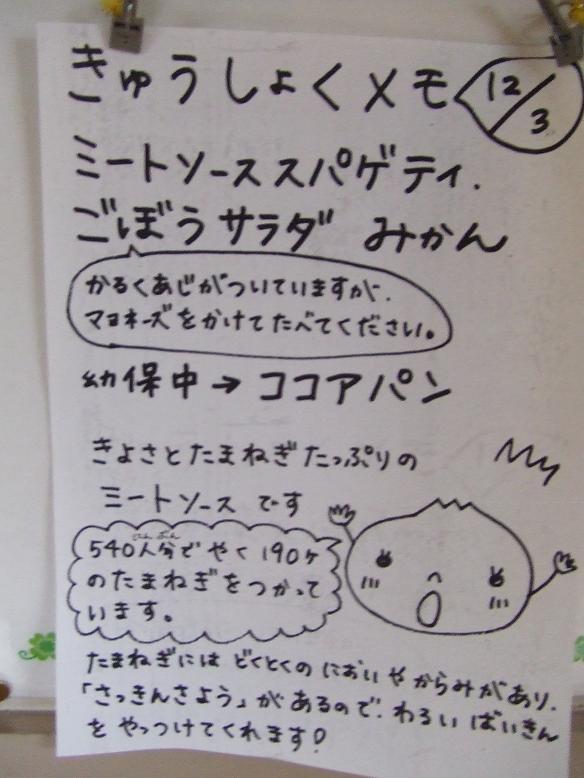 きゅうしょくメモ 12/3
ミートソーススパゲティ.
ごぼうサラダ みかん
かるくあじがついていますが、
マヨネーズをかけてたべてください。
幼保中→ココアパン
きよさとたまねぎたっぷりの
ミートソースです
にんぶん
540人分でやく190ヶ
のたまねぎをつかって
います。
たまねぎには どくとくの においや からみがあり、
「さっきんさよう」があるので、わるい ばいきん
を やっつけてくれます!